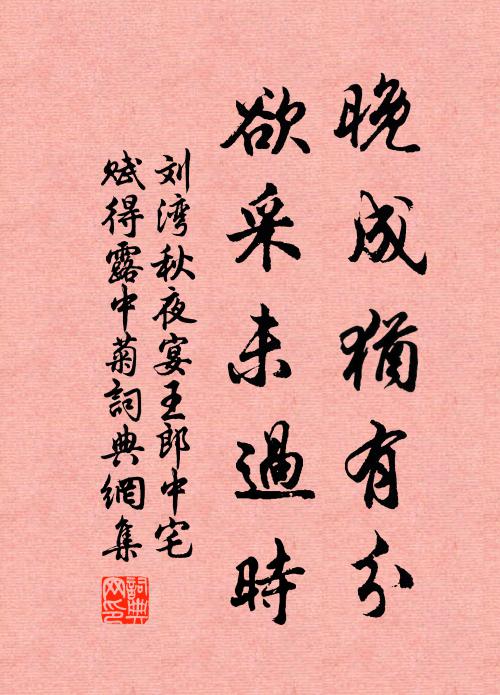 晚成猶有分
欲采未過時
刘湾秋夜宴王郎中宅
赋得露中菊詞典網集
詞典
网印